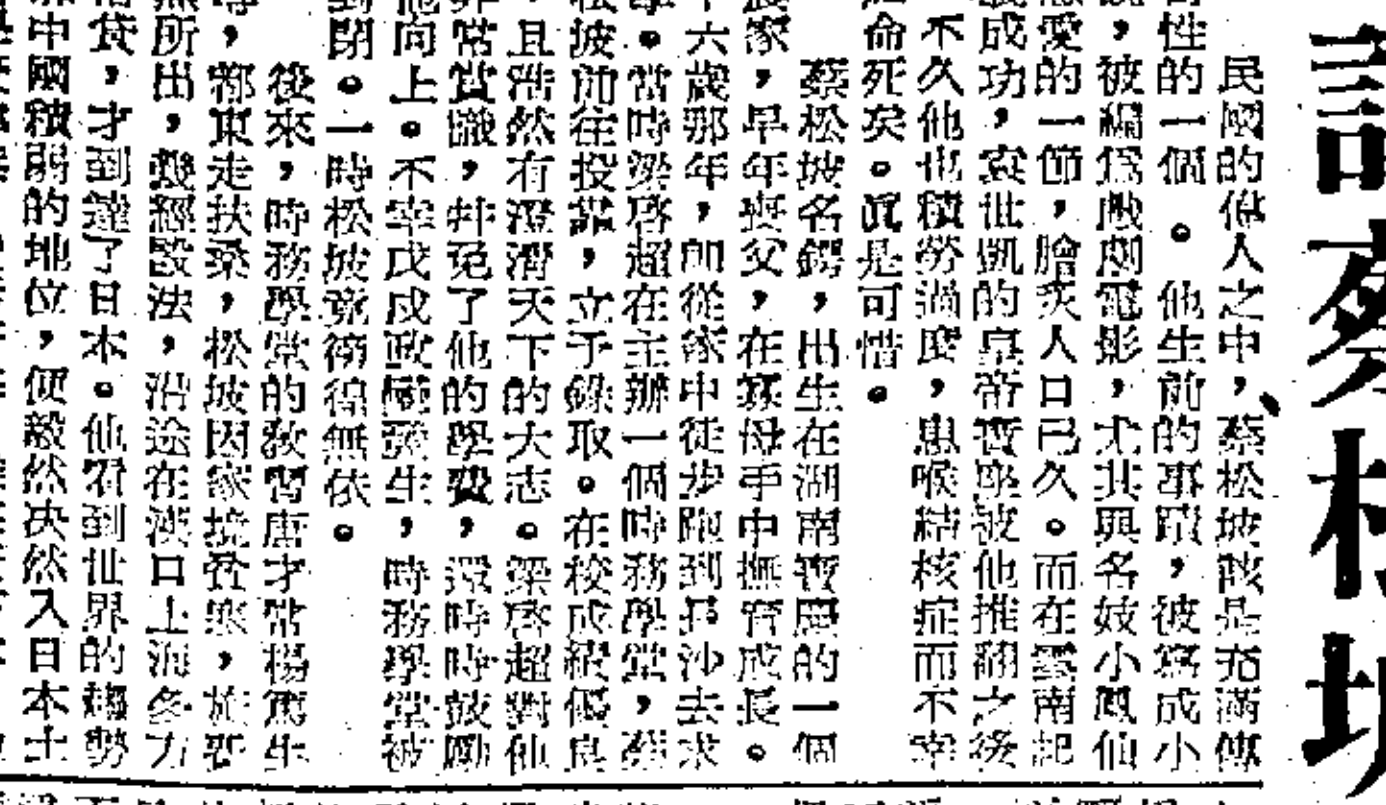 記蔡松坡
民國的偉人之中，蔡松坡該是充滿傳
奇性的一個。他生前的事蹟，被寫成小
說，被編爲戲劇電影，尤其與名妓小鳳仙
戀愛的一節，膾炙人口已久。而在雲南起
義成功，袁世凱的皇帝寶座被他推翻之後
不久他也積勞過度，患喉結核症而不幸
命死矣。眞是可惜。
蔡松坡名鍔，出生在湖南寶慶的一個
農家，早年喪父，在寡母手中撫育成長。
十六歲那年，卽從家中徒步跑到長沙去求
學。當時梁啓超在主辦一個時務學堂，蔡
松坡前往投靠，立予錄取。在校成績優良
且浩然有澄淸天下的大志。梁啓超對他
非常賞識，幷免了他的學費，還時時鼓勵
他向上。不幸戊戌政變發生，時務學堂被
封閉。一時松坡竟徬徨無依。
後來，時務學堂的敎習唐才常楊篤生
等，都東走扶桑，松坡因家境貧寒，旅費
無所出，幾經設法，沿途在漢口上海多方
借貸，才到達了日本。他看到世界的趨勢
中國積弱的地位，便毅然決然入日本士